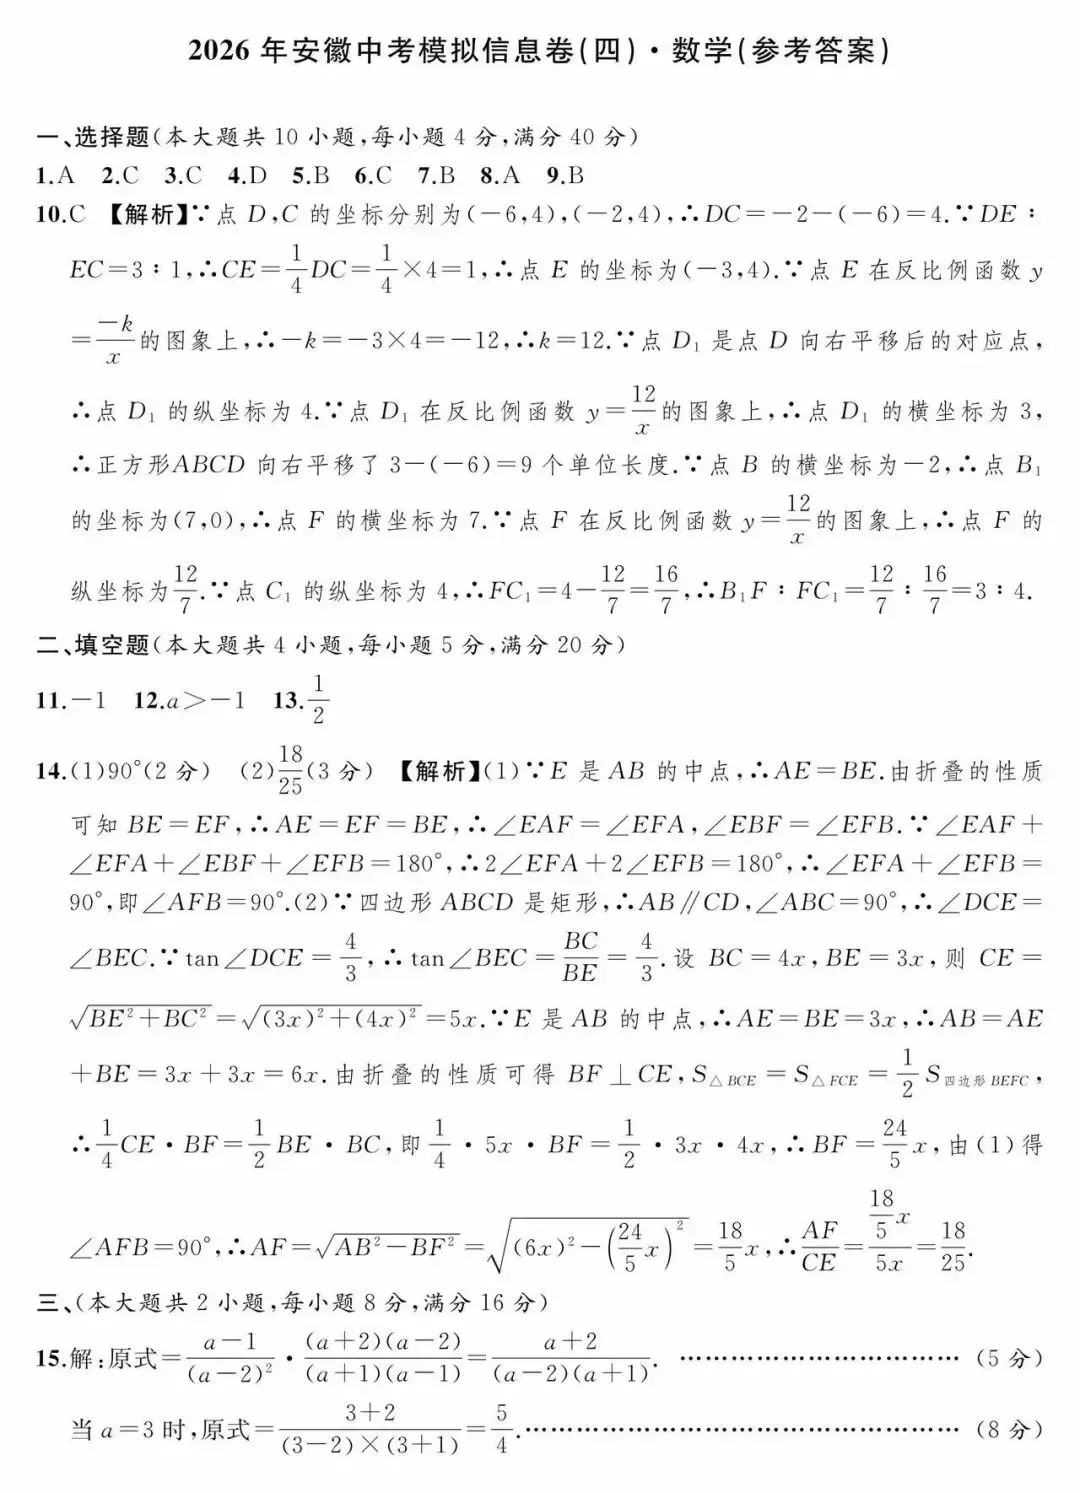 2026 年安徽中考模拟信息卷(四)·数学(参考答案)
一、选择题(本大题共 10 小题,每小题 4 分,满分 40 分)
1.A 2.C 3.C 4.D 5.B 6.C 7.B 8.A 9.B
10.C 【解析】∵点 D,C 的坐标分别为(-6,4),(-2,4),∴DC=-2-(-6)=4.∵DE∶
EC=3∶1,∴CE=1/4DC=1/4×4=1,∴点 E 的坐标为(-3,4).∵点 E 在反比例函数 y
=-k/x的图象上,∴-k=-3×4=-12,∴k=12.∵点 D₁ 是点 D 向右平移后的对应点,
∴点 D₁ 的纵坐标为 4.∵点 D₁ 在反比例函数 y=12/x的图象上,∴点 D₁ 的横坐标为 3,
∴正方形ABCD 向右平移了 3-(-6)=9 个单位长度.∵点 B 的横坐标为-2,∴点 B₁
的坐标为(7,0),∴点 F 的横坐标为 7.∵点 F 在反比例函数 y=12/x的图象上,∴点 F 的
纵坐标为12/7.∵点 C₁ 的纵坐标为 4,∴FC₁=4-12/7=16/7,∴B₁F∶FC₁=12/7∶16/7=3∶4.
二、填空题(本大题共 4 小题,每小题 5 分,满分 20 分)
11.-1 12.a>-1 13.1/2
14.(1)90°(2 分) (2)18/25(3 分) 【解析】(1)∵E 是 AB 的中点,∴AE=BE.由折叠的性质
可知 BE=EF,∴AE=EF=BE,∴∠EAF=∠EFA,∠EBF=∠EFB.∵∠EAF+
∠EFA+∠EBF+∠EFB=180°,∴2∠EFA+2∠EFB=180°,∴∠EFA+∠EFB=
90°,即∠AFB=90°.(2)∵四边形 ABCD 是矩形,∴AB∥CD,∠ABC=90°,∴∠DCE=
∠BEC.∵tan∠DCE=4/3,∴tan∠BEC=BC/BE=4/3.设 BC=4x,BE=3x,则 CE=
√(BE²+BC²)=√((3x)²+(4x)²)=5x.∵E 是 AB 的中点,∴AE=BE=3x,∴AB=AE
+BE=3x+3x=6x.由折叠的性质可得 BF⊥CE,S△BCE=S△FCE=1/2S四边形BEFC,
∴1/4CE·BF=1/2BE·BC,即1/4·5x·BF=1/2·3x·4x,∴BF=24/5x,由(1)得
∠AFB=90°,∴AF=√(AB²-BF²)=√((6x)²-(24/5x)²)=18/5x,∴AF/CE=(18/5x)/5x=18/25.
三、(本大题共 2 小题,每小题 8 分,满分 16 分)
15.解:原式=(a-1)/(a-2)²·(a+2)(a-2)/(a+1)(a-1)=(a+2)/(a-2)(a+1). ……………………………(5 分)
当 a=3 时,原式=(3+2)/(3-2)×(3+1)=5/4.……………………………………………(8 分)